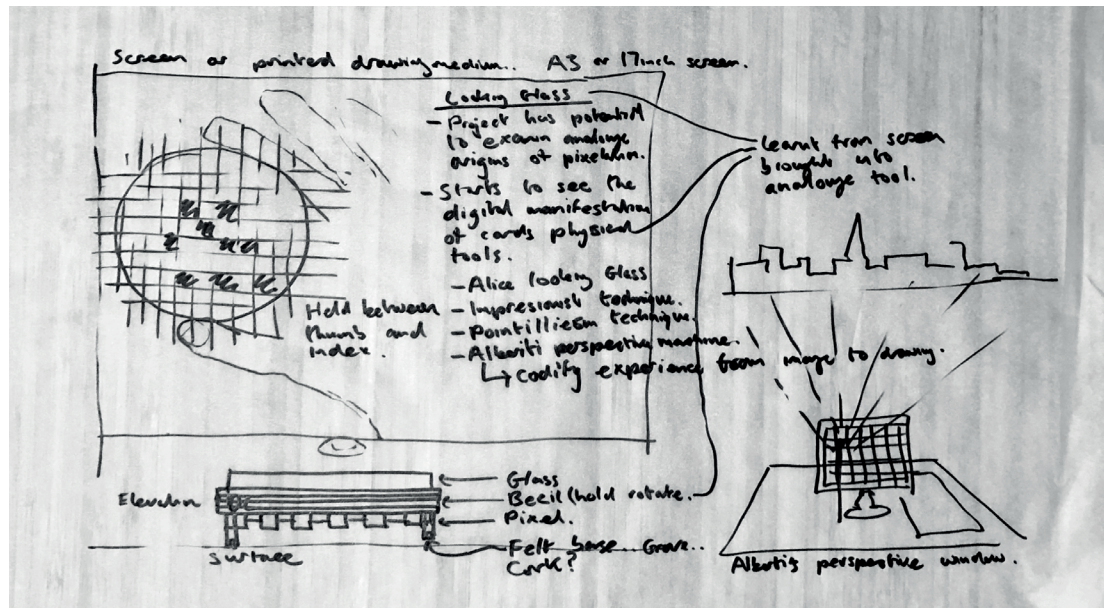 Screen or printed drawing medium.. A3 or 17inch screen.
Looking Glass
- Project has potential
to examin analouge
origins of pixelation.
- Starts to see the
digital manifestation
of cards physical
tools.
- Alice looking Glass
- Impresionist technique.
- Pointilliesm technique.
- Alberiti perspective machine.
↳ Codify experience from image to drawing.
Held between
thumb and
index.
Learnt from screen
brought into
analouge tool.
Elevation
Glass
Becil (hold rotate.
Pixel.
Felt base...
Cork?
Surface
Alberti's perspective window.